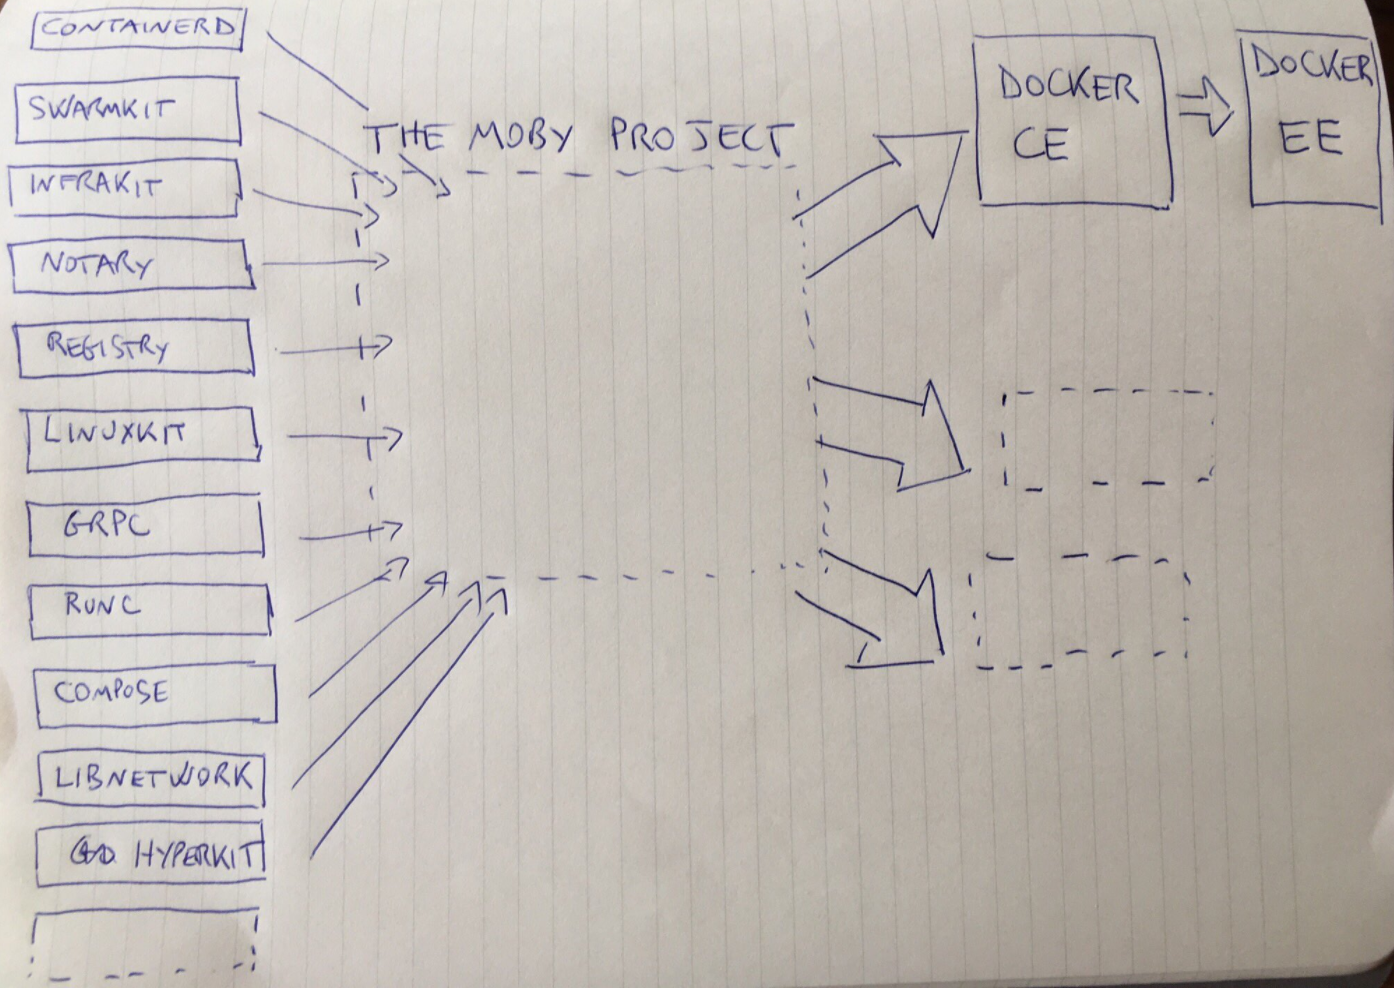 CONTAINERD
SWARMKIT
INFRAKIT
NOTARY
REGISTRY
LINUXKIT
GRPC
RUNC
COMPOSE
LIBNETWORK
HYPERKIT
THE MOBY PROJECT
DOCKER
CE
DOCKER
EE